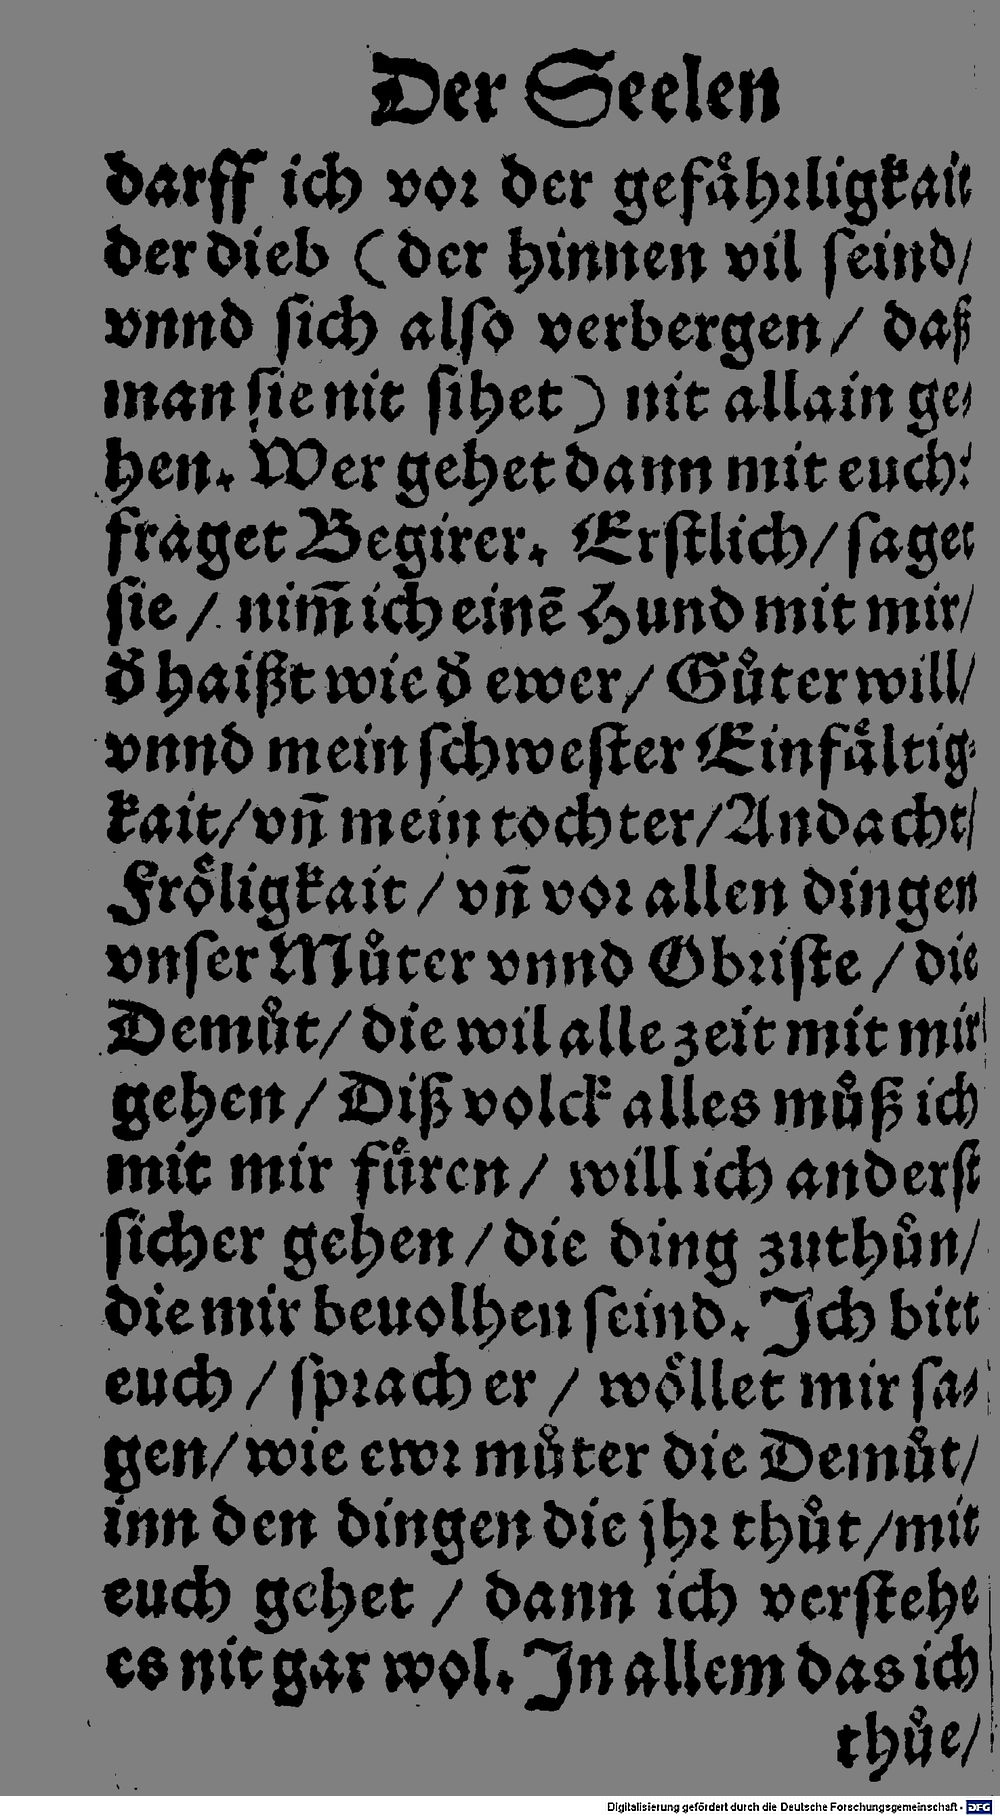 Der Seelen
darff ich vor der gefåhrligkait
der dieb (der hinnen vil ſeind/
vnnd ſich alſo verbergen/ daß
man ſie nit ſihet) nit allain ge⸗
hen. Wer gehet dann mit euch?
fraget Begirer. Erſtlich/ ſaget
ſie/ nim̃ ich einē Hund mit mir/
d̕ haißt wie d̕ ewer/ Gůter will/
vnnd mein ſchweſter Einfåltig⸗
kait/ vñ mein tochter/ Andacht/
Frôligkait/ vñ vor allen dingen
vnſer Můter vnnd Obriſte/ die
Demůt/ die wil alle zeit mit mir
gehen/ Diß volck alles můß ich
mit mir fůren/ will ich anderſt
ſicher gehen/ die ding zuthůn/
die mir beuolhen ſeind. Ich bitt
euch/ ſprach er/ wôllet mir ſa⸗
gen/ wie ewr můter die Demůt/
inn den dingen die jhr thůt/ mit
euch gehet/ dann ich verſtehe
es nit gar wol. In allem das ich
thůe/
Digitalisierung gefördert durch die Deutsche Forschungsgemeinschaft - DFG